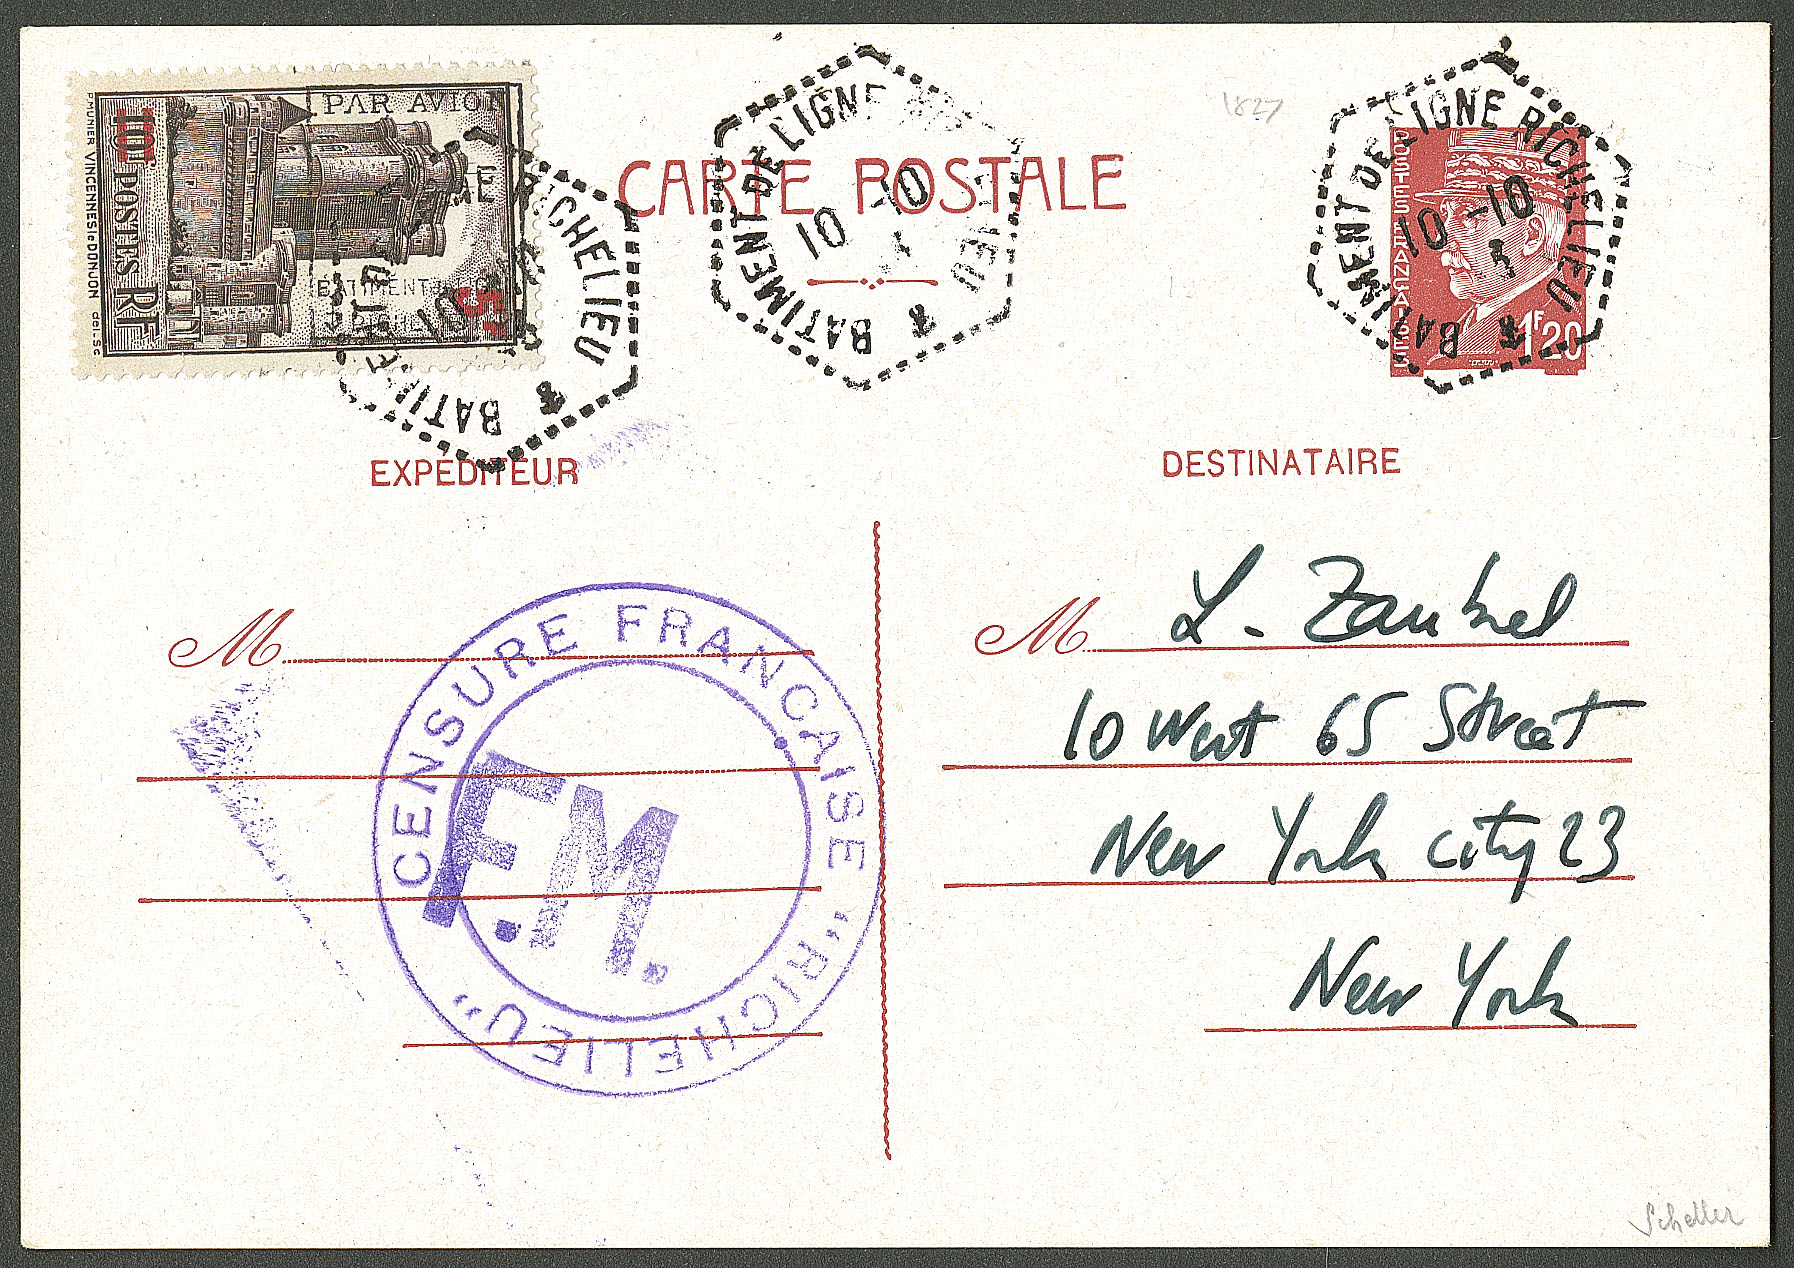 PAR AVION
10F
POSTES RF
P. MUNIER VINCENNES le DONJON del. sc.
BATIMENT
RICHELIEU
BATIMENT DE LIGNE
10 -10
BATIMENT DE LIGNE RICHELIEU
10 -10
1827
CARTE POSTALE
POSTES FRANÇAISES
1F20
EXPÉDITEUR
DESTINATAIRE
M
CENSURE FRANCAISE "RICHELIEU"
F.M.
M
L. Zaubzel
10 West 65 Street
New York City 23
New York
Scheller